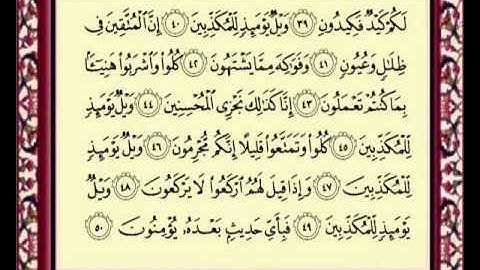 لَكُمْ كَيْدٌ فَكِيدُونِ ٣٩ وَيْلٌ يَوْمَئِذٍ لِّلْمُكَذِّبِينَ ٤٠ إِنَّ ٱلْمُتَّقِينَ فِى
ظِلَٰلٍ وَعُيُونٍ ٤١ وَفَوَٰكِهَ مِمَّا يَشْتَهُونَ ٤٢ كُلُوا۟ وَٱشْرَبُوا۟ هَنِيٓـًٔۢا
بِمَا كُنتُمْ تَعْمَلُونَ ٤٣ إِنَّا كَذَٰلِكَ نَجْزِى ٱلْمُحْسِنِينَ ٤٤ وَيْلٌ يَوْمَئِذٍ
لِّلْمُكَذِّبِينَ ٤٥ كُلُوا۟ وَتَمَتَّعُوا۟ قَلِيلًا إِنَّكُم مُّجْرِمُونَ ٤٦ وَيْلٌ يَوْمَئِذٍ
لِّلْمُكَذِّبِينَ ٤٧ وَإِذَا قِيلَ لَهُمُ ٱرْكَعُوا۟ لَا يَرْكَعُونَ ٤٨ وَيْلٌ
يَوْمَئِذٍ لِّلْمُكَذِّبِينَ ٤٩ فَبِأَىِّ حَدِيثٍۭ بَعْدَهُۥ يُؤْمِنُونَ ٥٠